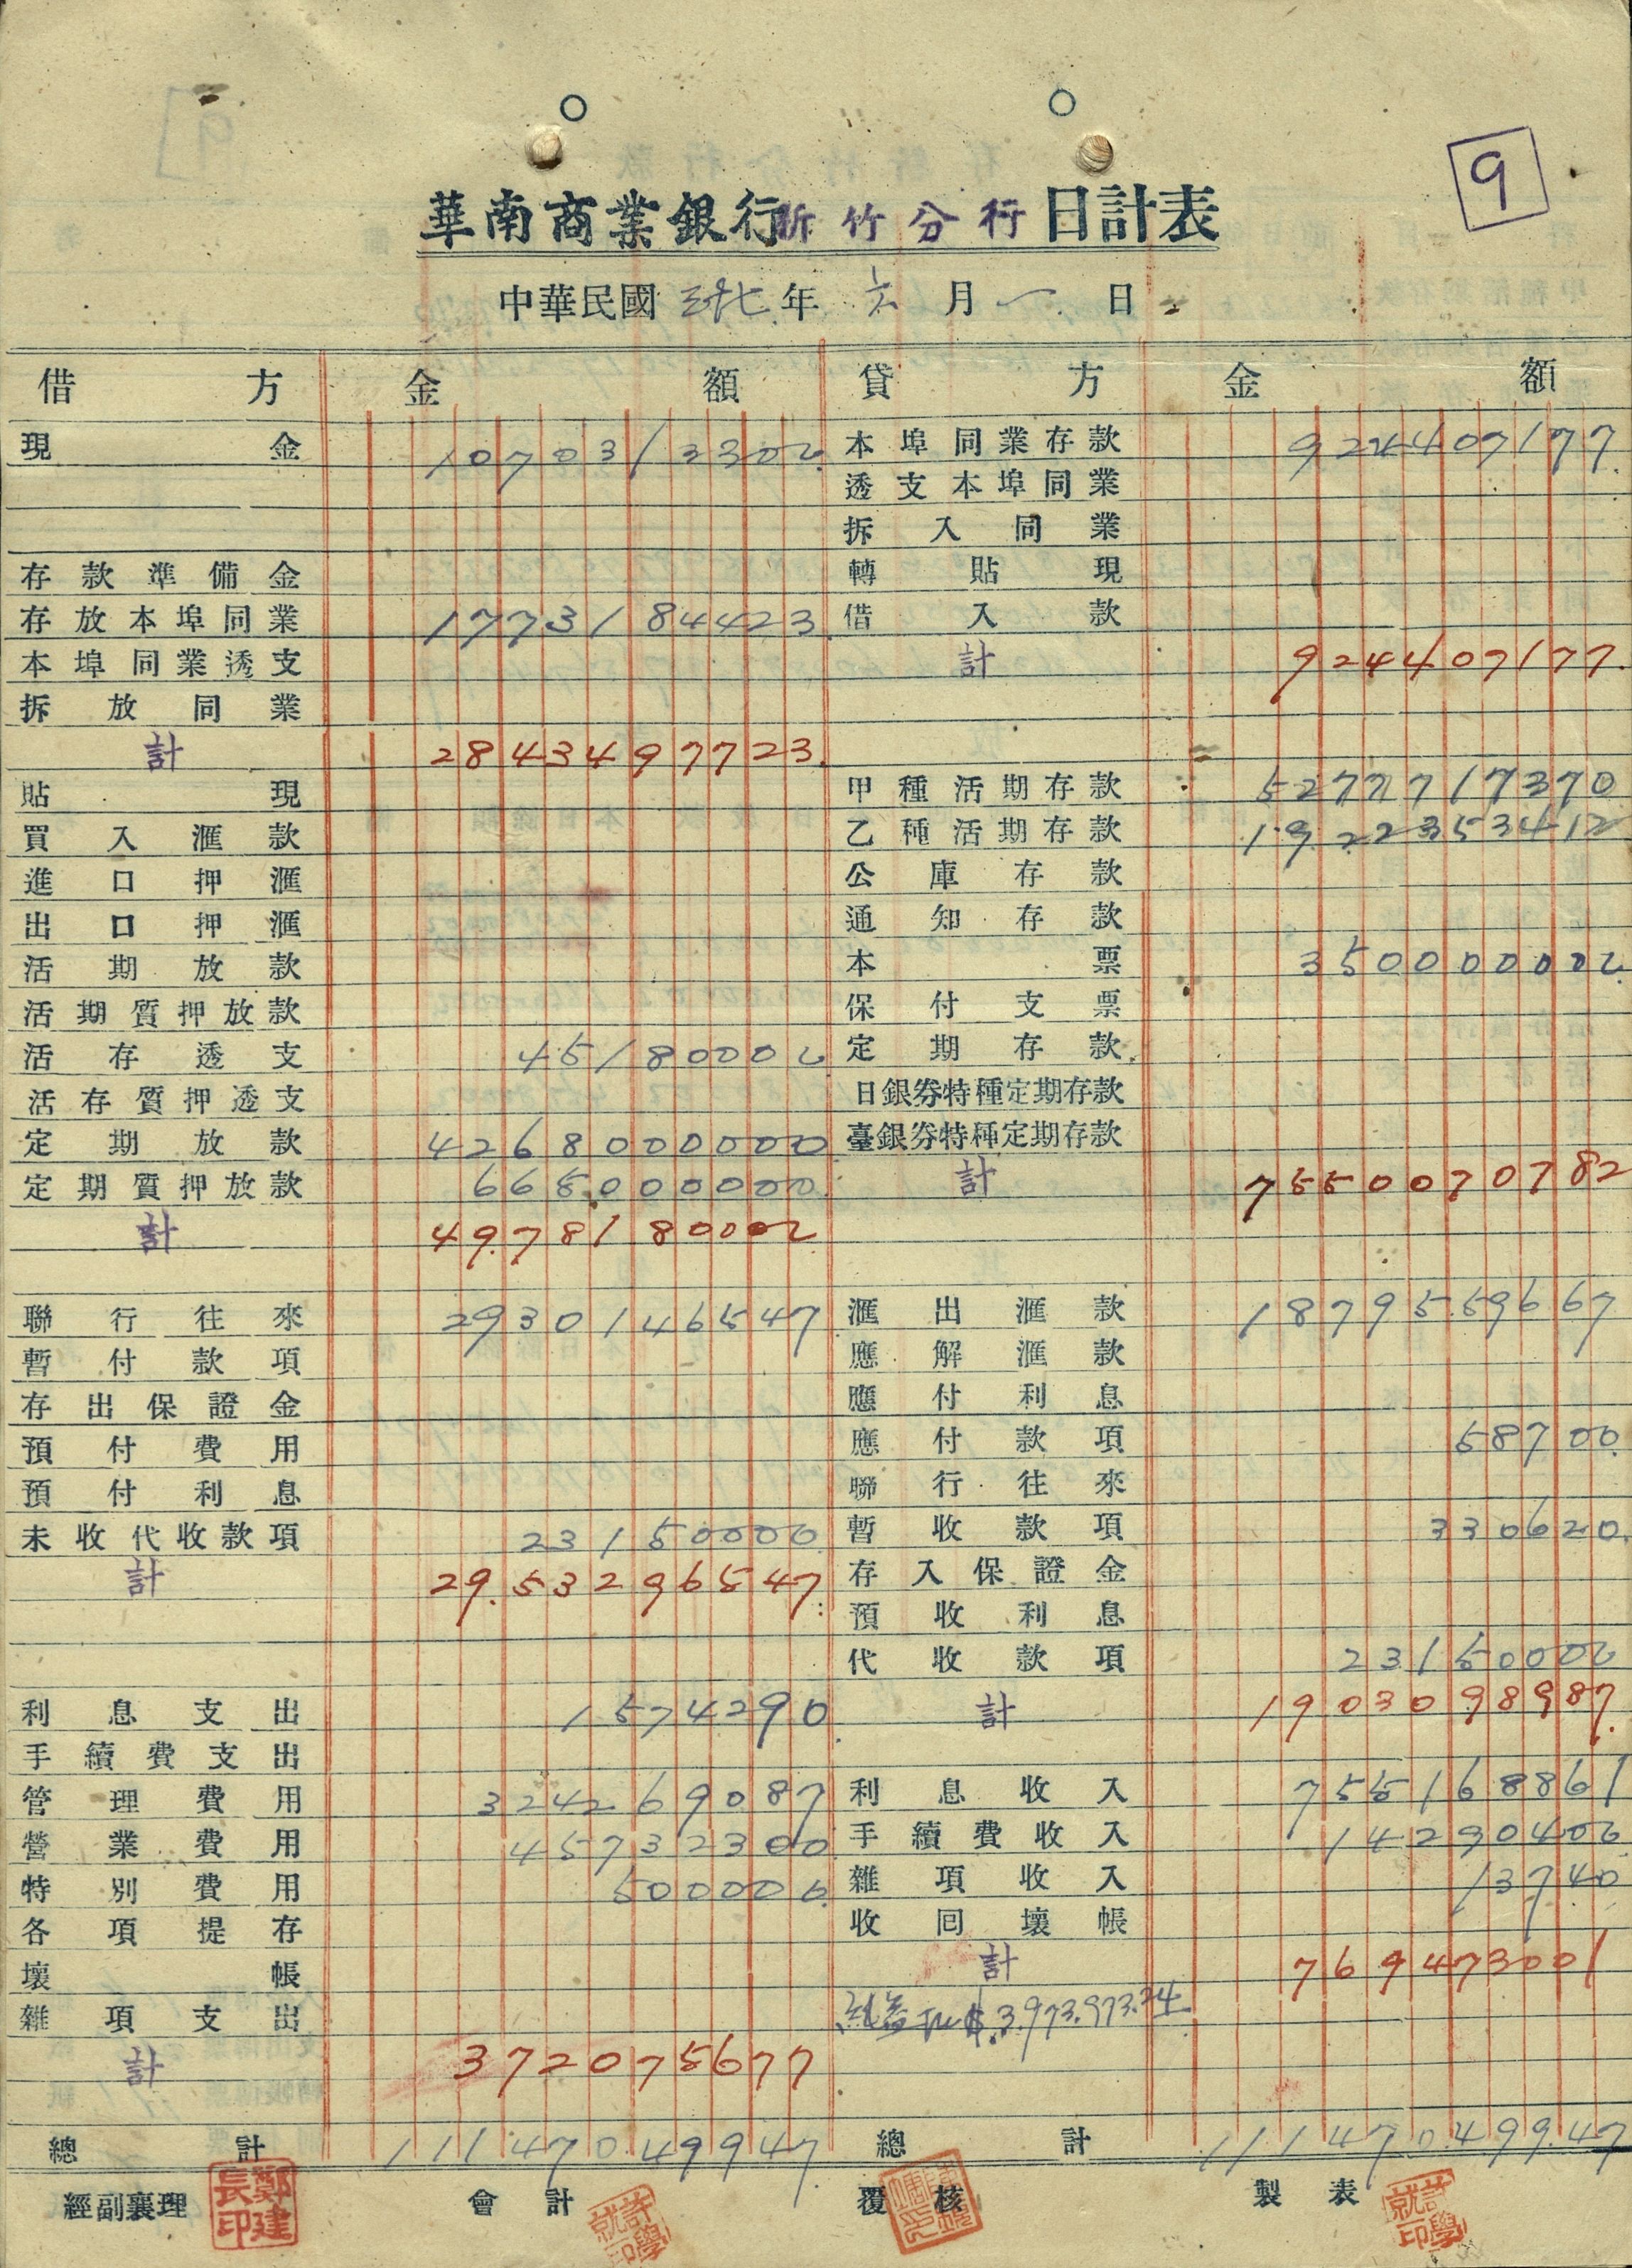 9
華南商業銀行新竹分行日計表
中華民國 卅七 年 六 月 一 日
借方 金額 貸方 金額
現金 1070313300 本埠同業存款 924407177
透支本埠同業
拆入同業
存款準備金 轉貼現
存放本埠同業 1773184423 借入款
本埠同業透支 計 924407177
拆放同業
計 2843497723
貼現 甲種活期存款 5277717370
買入滙款 乙種活期存款 1922353412
進口押滙 公庫存款
出口押滙 通知存款
活期放款 本票 350000000
活期質押放款 保付支票
活存透支 45180000 定期存款
活存質押透支 日銀券特種定期存款
定期放款 4268000000 臺銀券特種定期存款
定期質押放款 665000000 計 7550070782
計 4978180000
聯行往來 2930146547 滙出滙款 1879559667
暫付款項 應解滙款
存出保證金 應付利息
預付費用 應付款項 58700
預付利息 聯行往來
未收代收款項 23150000 暫收款項 330620
計 2953296547 存入保證金
預收利息
代收款項 23150000
利息支出 1574290 計 1903098987
手續費支出
管理費用 324269087 利息收入 755168861
營業費用 45732300 手續費收入 14290400
特別費用 500000 雜項收入 13740
各項提存 收回壞帳
壞帳 計 769473001
雜項支出 純益 $3,973,973.24
計 372075677
總計 11147049947 總計 11147049947
經副襄理 鄭建長印 會計 許學就印 覆核 製表 許學就印